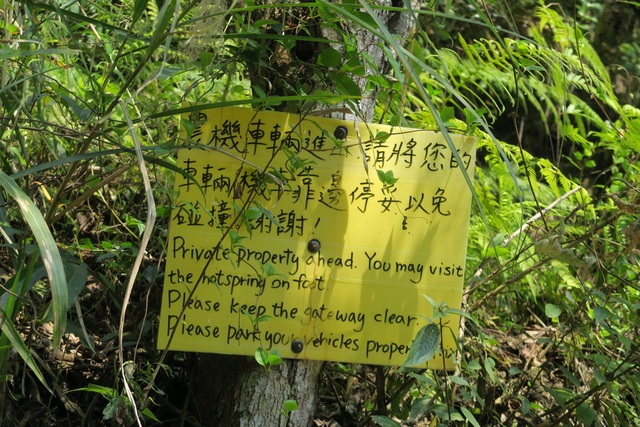 機車輛進 請將您的
車輛/機車靠邊停妥以免
碰撞 謝謝！
Private property ahead. You may visit
the hotspring on foot.
Please keep the gateway clear.
Please park your vehicles